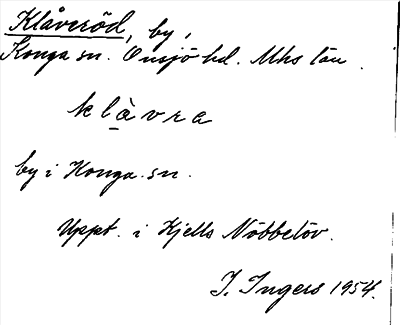 Klåveröd, by,
Konga sn. Onsjö hd. Mhs län.
klàvra
by i Konga sn.
Uppt. i Kjells Nöbbelöv.
I. Ingers 1954.